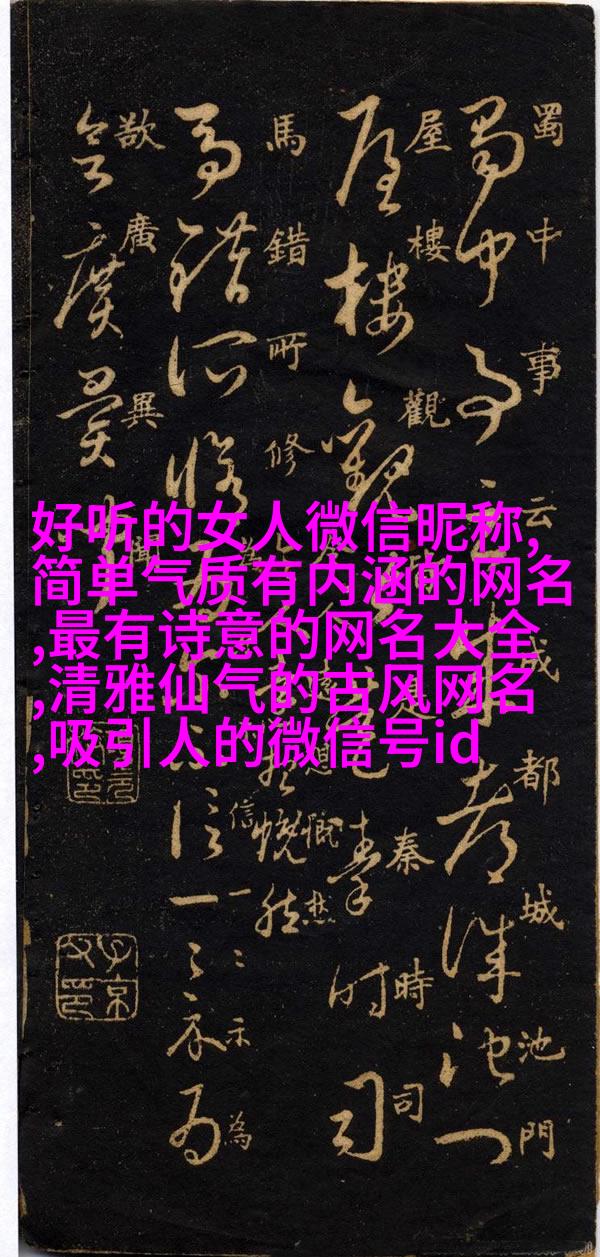 好听的女人微信昵称,
简单气质有内涵的网名
,最有诗意的网名大全
,清雅仙气的古风网名
,吸引人的微信号id
蜀中事云成都城池門
屋樓觀皆是秦時司
馬錯所修令人遠想慨然
信一一示為
欲廣異聞